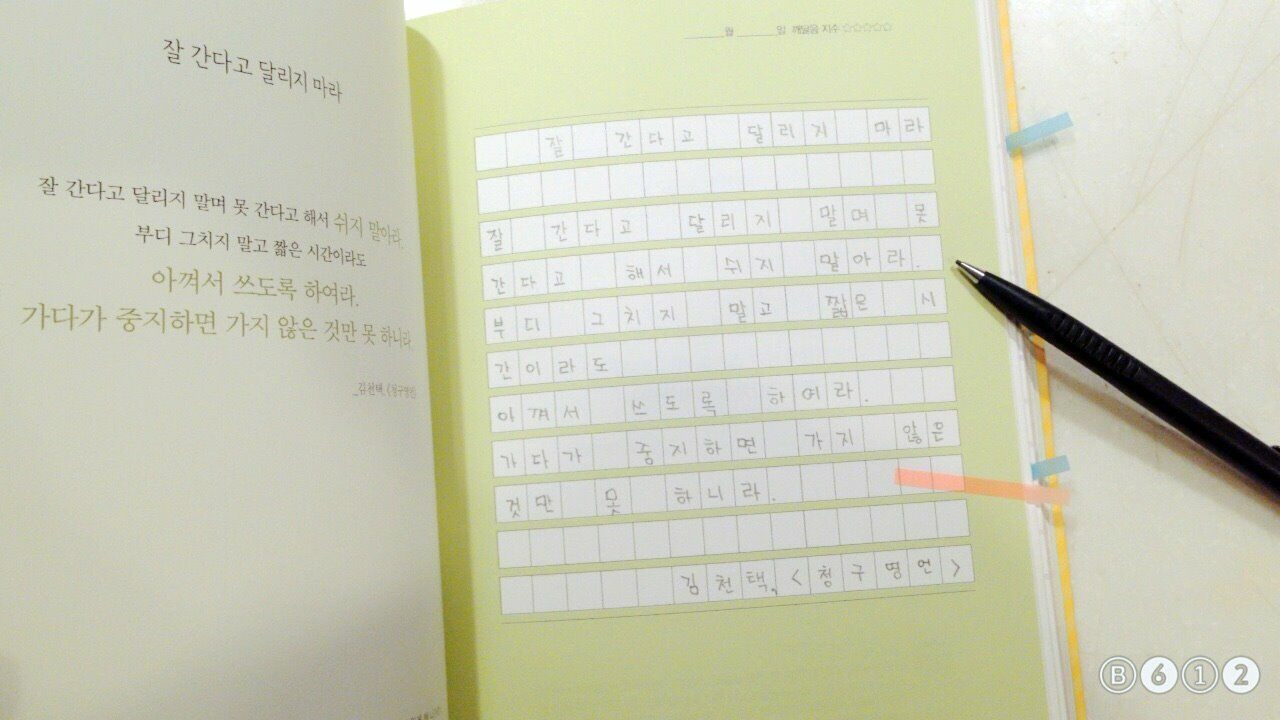 잘 간다고 달리지 마라
잘 간다고 달리지 말며 못 간다고 해서 쉬지 말아라.
부디 그치지 말고 짧은 시간이라도
아껴서 쓰도록 하여라.
가다가 중지하면 가지 않은 것만 못 하니라
_김천택, 《청구영언》
월 일 깨달음 지수 ☆☆☆☆☆
잘 간다고 달리지 마라
잘 간다고 달리지 말며 못
간다고 해서 쉬지 말아라.
부디 그치지 말고 짧은 시
간이라도
아껴서 쓰도록 하여라.
가다가 중지하면 가지 않은
것만 못 하니라.
김천택, <청구영언>
B612